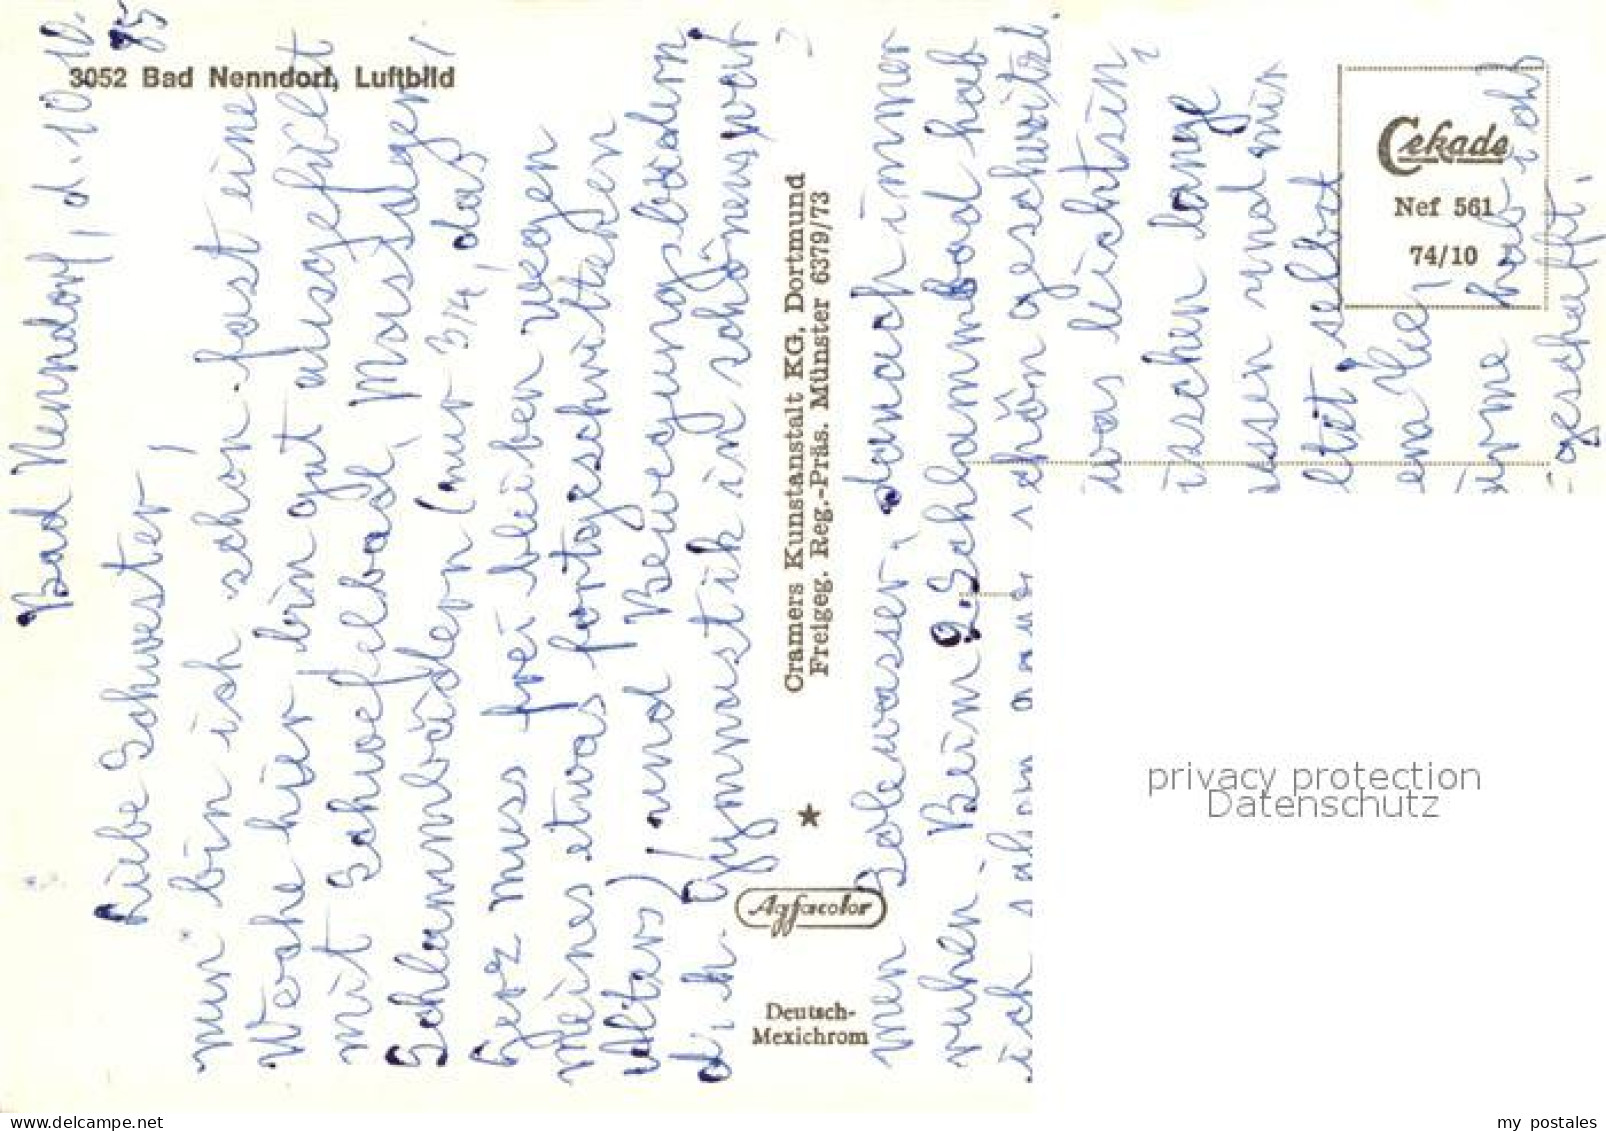 3052 Bad Nenndorf, Luftbild
Bad Nenndorf, d. 10.10.
85
Liebe Schwester,
nun bin ich schon fast eine
Woche hier bin gut ausgefüllt
mit Schwefelbad, Massagen,
Schlammbädern (nur 3/4, das
Herz muss frei bleiben wegen
meines etwas fortgeschrittenen
Alters) und Bewegungsbädern,
d.h. Gymnastik im schönen war
men Solewasser, danach immer
ruhen. Beim 2. Schlammbad hab
ich schon ganz schön geschwitzt.
was leichtsin
ischen lange
ussen und mir
ltet, selbst
ena hier
hab ich
geschafft.
Cramers Kunstanstalt KG, Dortmund
Freigeg. Reg.-Präs. Münster 6379/73
Agfacolor
Deutsch-
Mexichrom
Cekade
Nef 561
74/10
privacy protection
Datenschutz
www.delcampe.net
my_postales